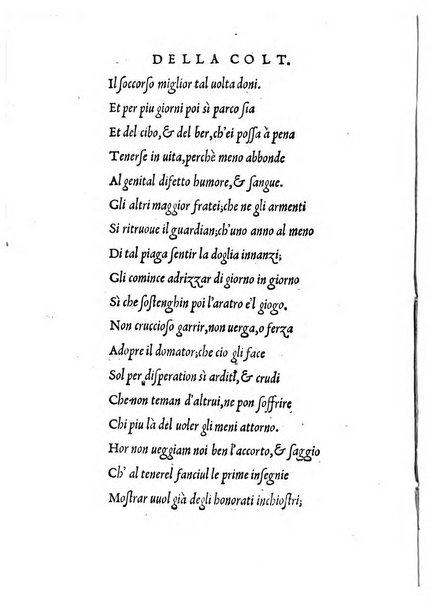 DELLA COLT.
Il ſoccorſo miglior tal uolta doni.
Et per piu giorni poi sì parco ſia
Et del cibo, & del ber, ch'ei poſſa à pena
Tenerſe in uita, perchè meno abbonde
Al genital difetto humore, & ſangue.
Gli altri maggior fratei; che ne gli armenti
Si ritruoue il guardian; ch'uno anno al meno
Di tal piaga ſentir la doglia innanzi;
Gli comince adrizzar di giorno in giorno
Sì che ſoſtenghin poi l'aratro e'l giogo.
Non cruccioſo garrir, non uerga, o ferza
Adopre il domator; che cio gli face
Sol per diſperation sì arditi, & crudi
Che non teman d'altrui, ne pon ſoffrire
Chi piu là del uoler gli meni attorno.
Hor non ueggiam noi ben l'accorto, & ſaggio
Ch' al tenerel fanciul le prime inſegnie
Moſtrar uuol già degli honorati inchioſtri;